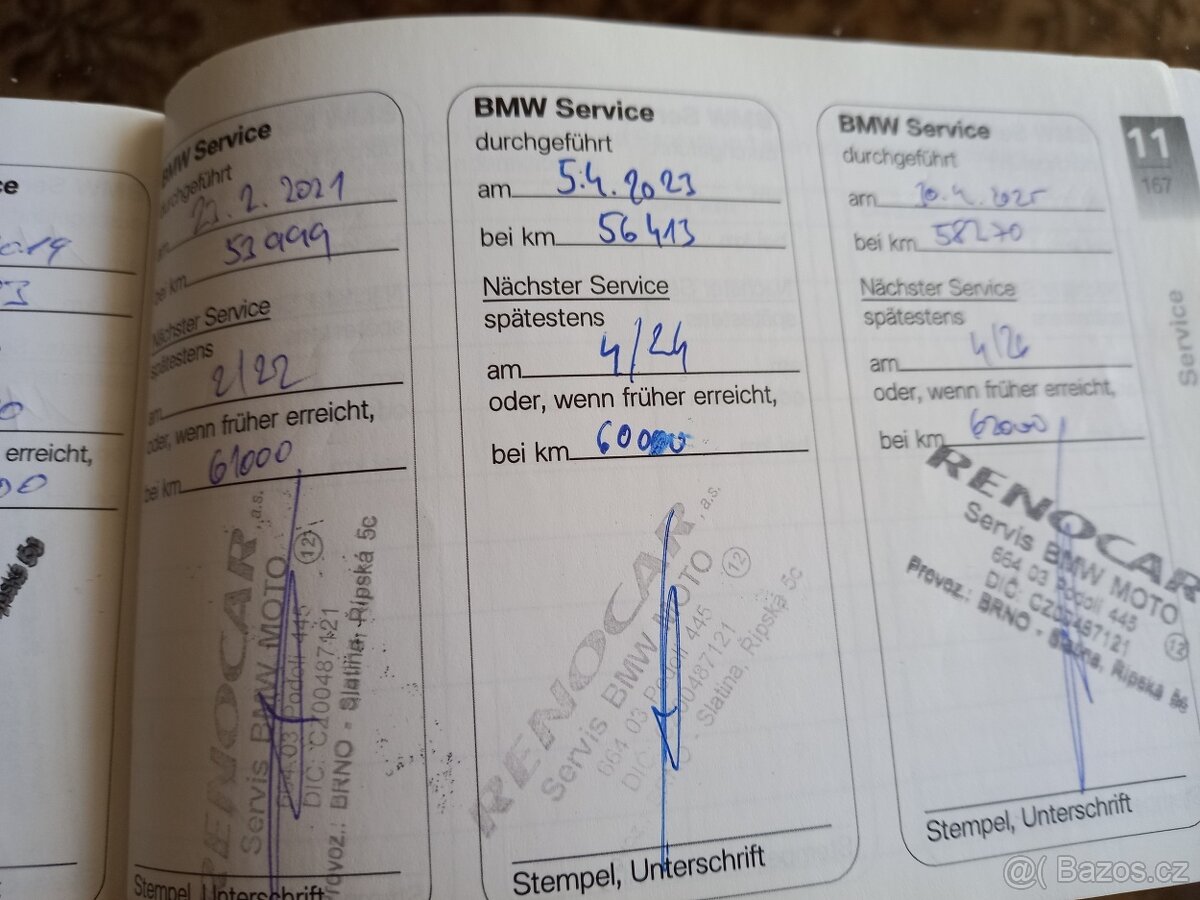 erreicht,
BMW Service
durchgeführt
2. 2021
bei km 53999
Nächster Service
spätestens
am 2/22
oder, wenn früher erreicht,
bei km 61000
RENOCAR, a.s.
Servis BMW MOTO
664 03 Podolí 445
DIČ: CZ00487121
Provoz.: BRNO - Slatina, Řipská 5c
12
Stempel, Unterschrift
BMW Service
durchgeführt
am 5.4.2023
bei km 56413
Nächster Service
spätestens
am 4/24
oder, wenn früher erreicht,
bei km 60000
RENOCAR, a.s.
Servis BMW MOTO
664 03 Podolí 445
DIČ 00487121
- Slatina, Řipská 5c
12
Stempel, Unterschrift
BMW Service
durchgeführt
am 30.4.2025
bei km 58270
Nächster Service
spätestens
am 4/26
oder, wenn früher erreicht,
bei km
RENOCAR
Servis BMW MOTO
664 03 Podolí 445
DIČ: CZ00487121
Provoz.: BRNO - Slatina, Řipská 5c
12
Stempel, Unterschrift
11
167
Service
@( Bazos.cz